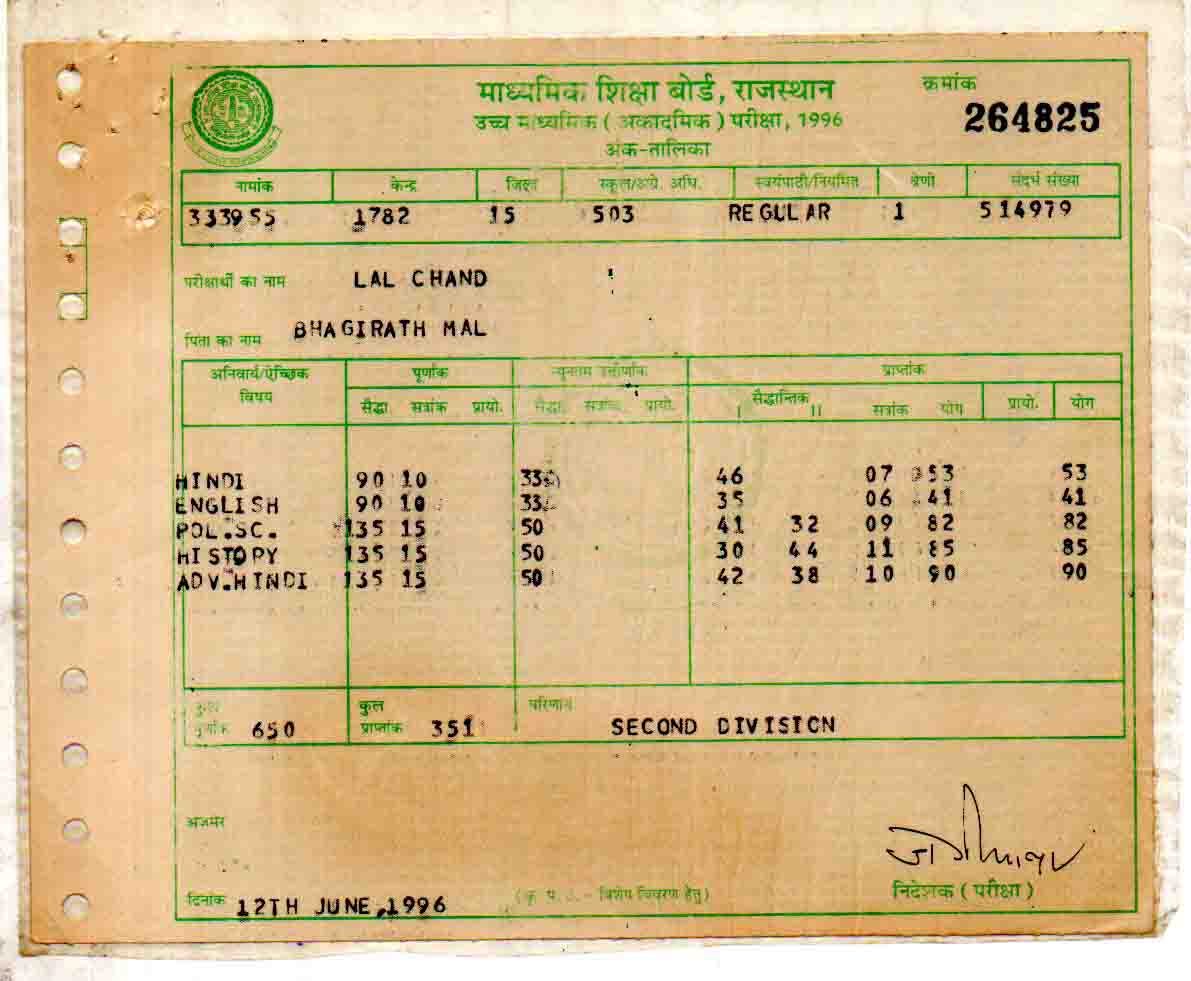 माध्यमिक शिक्षा बोर्ड, राजस्थान
क्रमांक
264825
उच्च माध्यमिक ( अकादमिक ) परीक्षा, 1996
अंक-तालिका
नामांक केन्द्र जिला स्कूल/अग्रे. अधि. स्वयंपाठी/नियमित श्रेणी संदर्भ संख्या
333955 1782 15 503 REGULAR 1 514979
परीक्षार्थी का नाम LAL CHAND
पिता का नाम BHAGIRATH MAL
अनिवार्य/ऐच्छिक विषय पूर्णांक न्यूनतम उत्तीर्णांक प्राप्तांक
सैद्धा. सत्रांक प्रायो. सैद्धा. सत्रांक प्रायो. सैद्धान्तिक I II सत्रांक योग प्रायो. योग
HINDI 90 10 33 46 07 53 53
ENGLISH 90 10 33 35 06 41 41
POL.SC. 135 15 50 41 32 09 82 82
HISTORY 135 15 50 30 44 11 85 85
ADV.HINDI 135 15 50 42 38 10 90 90
कुल पूर्णांक 650 कुल प्राप्तांक 351 परिणाम SECOND DIVISION
अजमेर
निदेशक ( परीक्षा )
दिनांक 12TH JUNE,1996 (कृ. प. उ. - विशेष विवरण हेतु)